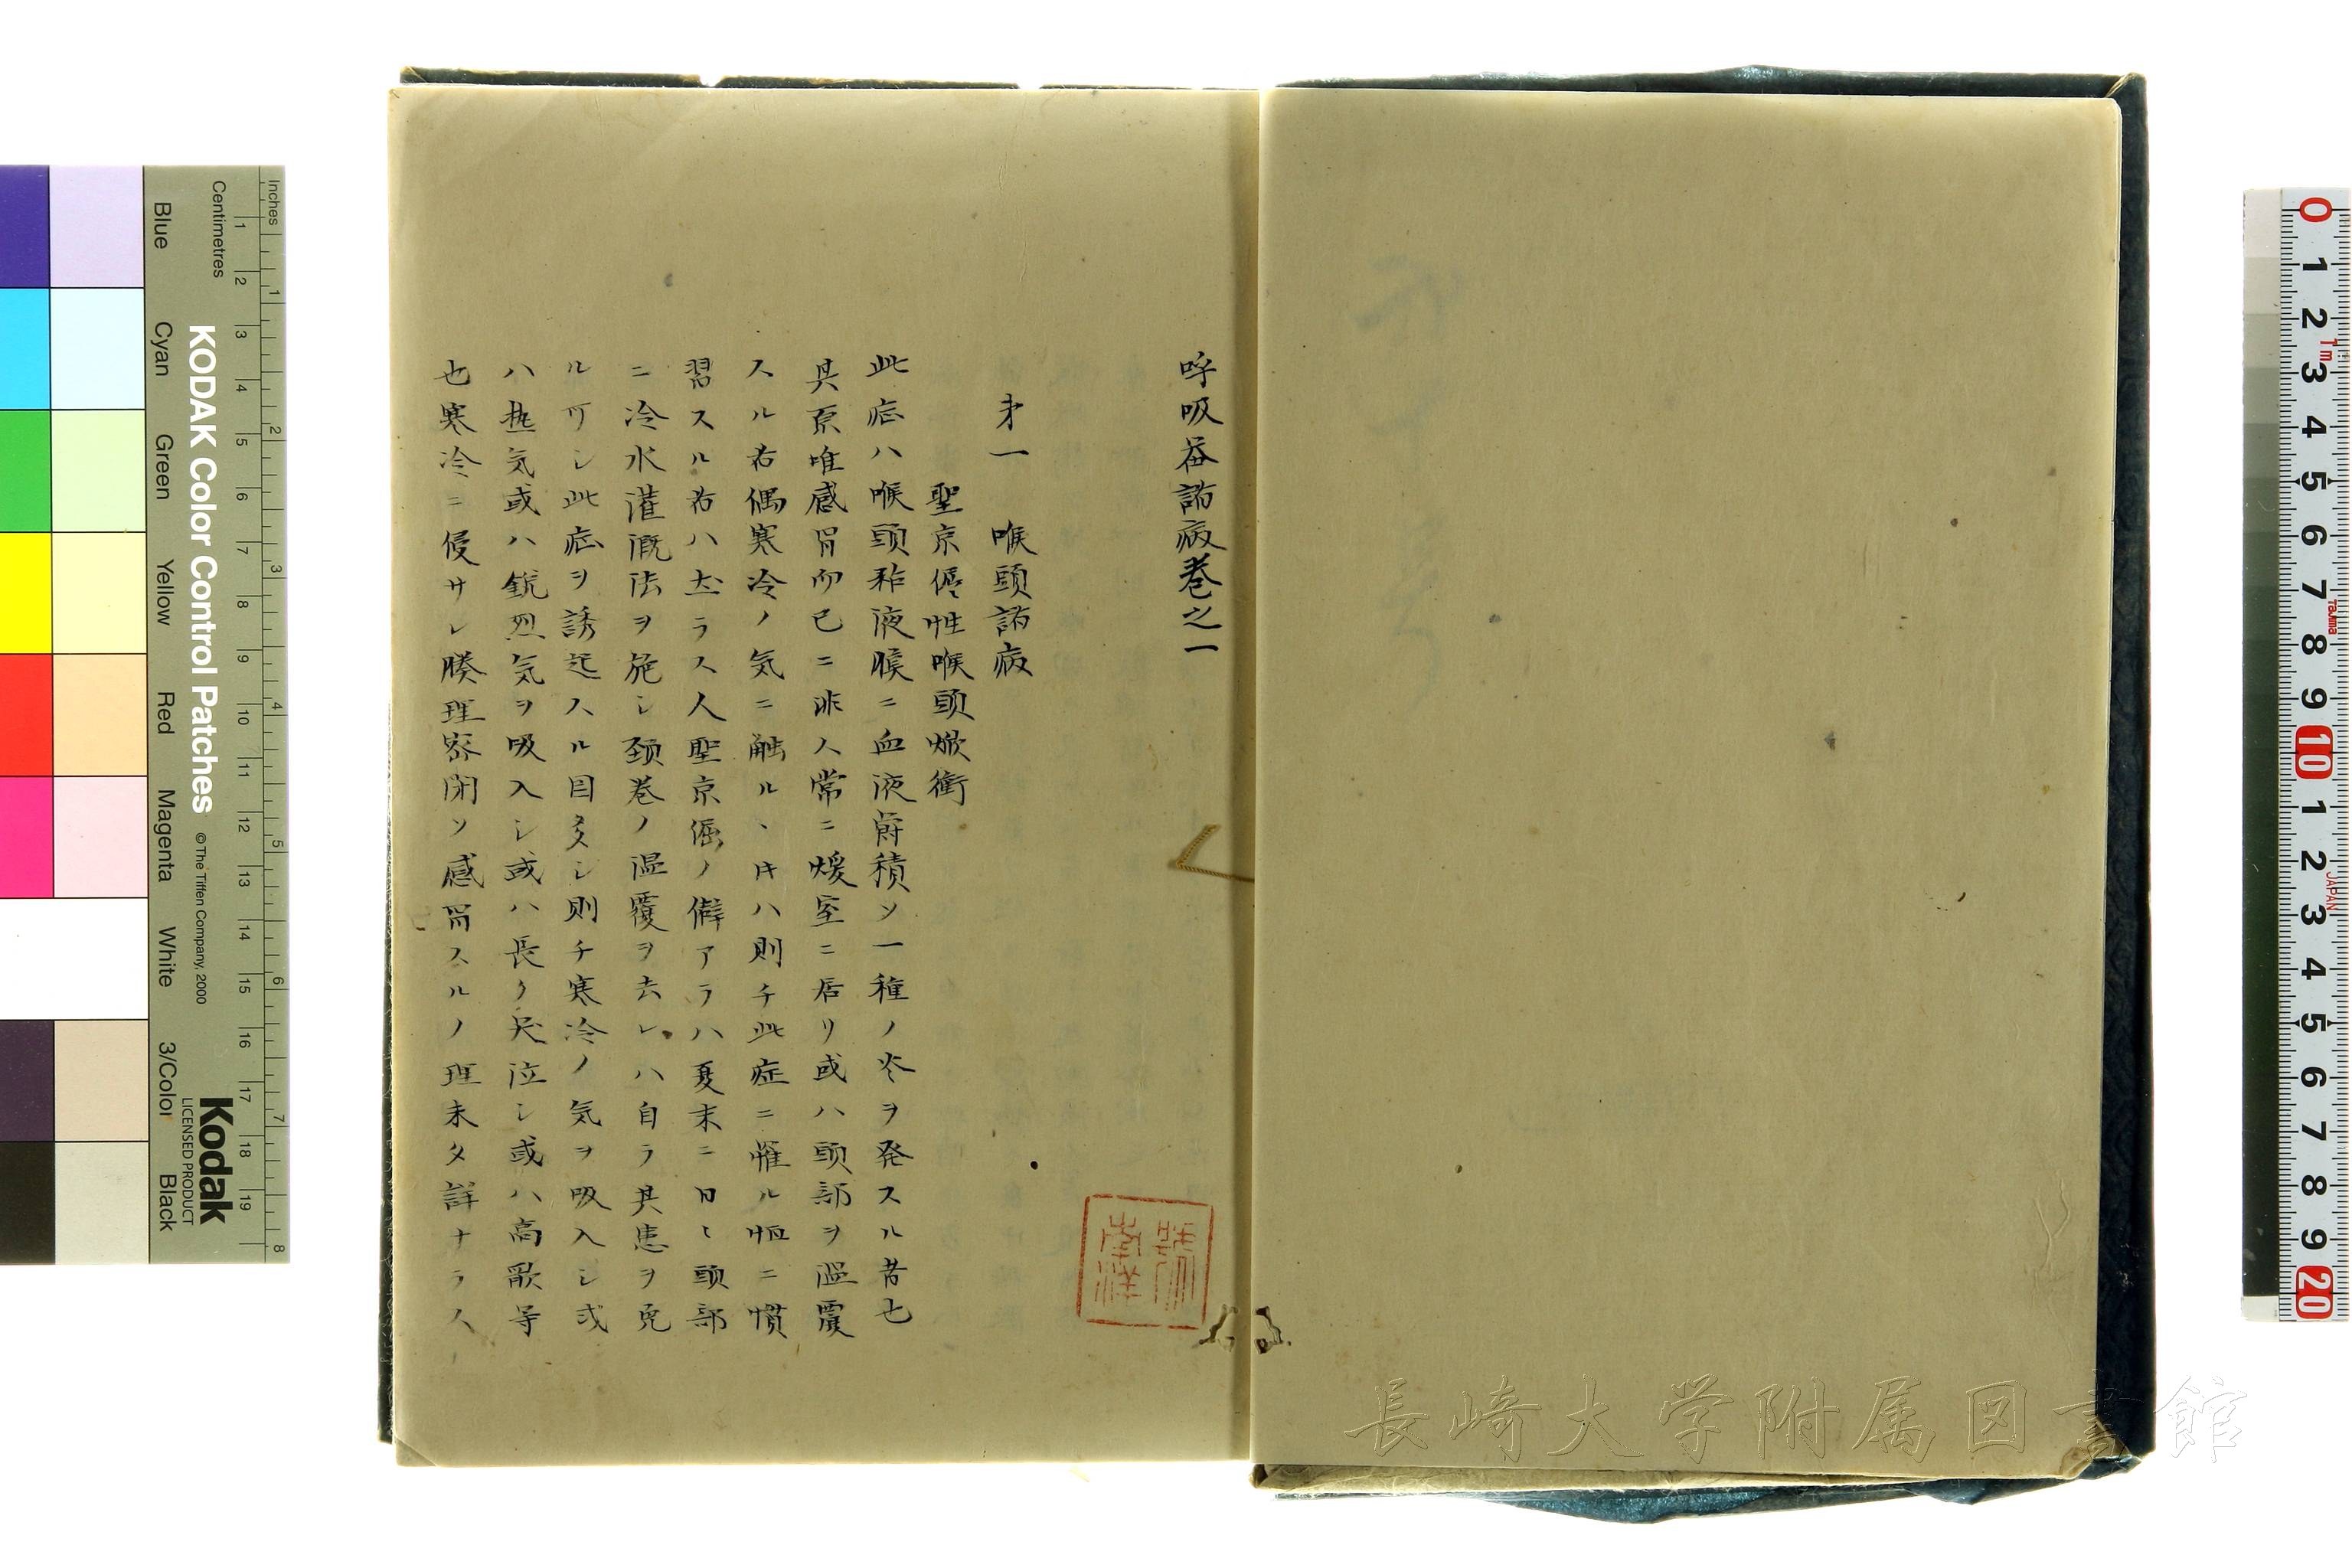 呼吸器諸病巻之一
才一　喉頭諸病
聖京偓性喉頭焮衝
此症ハ喉頭粘液膜ニ血液蔚積ソ一種ノ炎ヲ発スル者也
其原唯感冒而已ニ非人常ニ煖室ニ居リ或ハ頭部ヲ温覆
スル者偶寒冷ノ気ニ触ル丶片ハ則チ此症ニ罹ル恒ニ慣
習スル者ハ左ラス人聖京偓ノ僻アラハ夏末ニ日〻頭部
ニ冷水灌漑法ヲ施シ頚巻ノ温覆ヲ去レハ自ラ其患ヲ免
ルヿシ此症ヲ誘起スル目多シ則チ寒冷ノ気ヲ吸入シ或
ハ熱気或ハ鋭烈気ヲ吸入シ或ハ長ク哭泣シ或ハ高歌等
也寒冷ニ侵サレ腠理密閉ソ感冒スルノ理未タ詳ナラス
長崎大学附属図書館
Inches
Centimetres
KODAK Color Control Patches
© The Tiffen Company, 2000
Kodak
LICENSED PRODUCT
Blue
Cyan
Green
Yellow
Red
Magenta
White
3/Color
Black
1 2 3 4 5 6 7 8 9 10 11 12 13 14 15 16 17 18 19
1 2 3 4 5 6 7 8
0 1 2 3 4 5 6 7 8 9 10 1 2 3 4 5 6 7 8 9 20
1m
Tajima
JAPAN